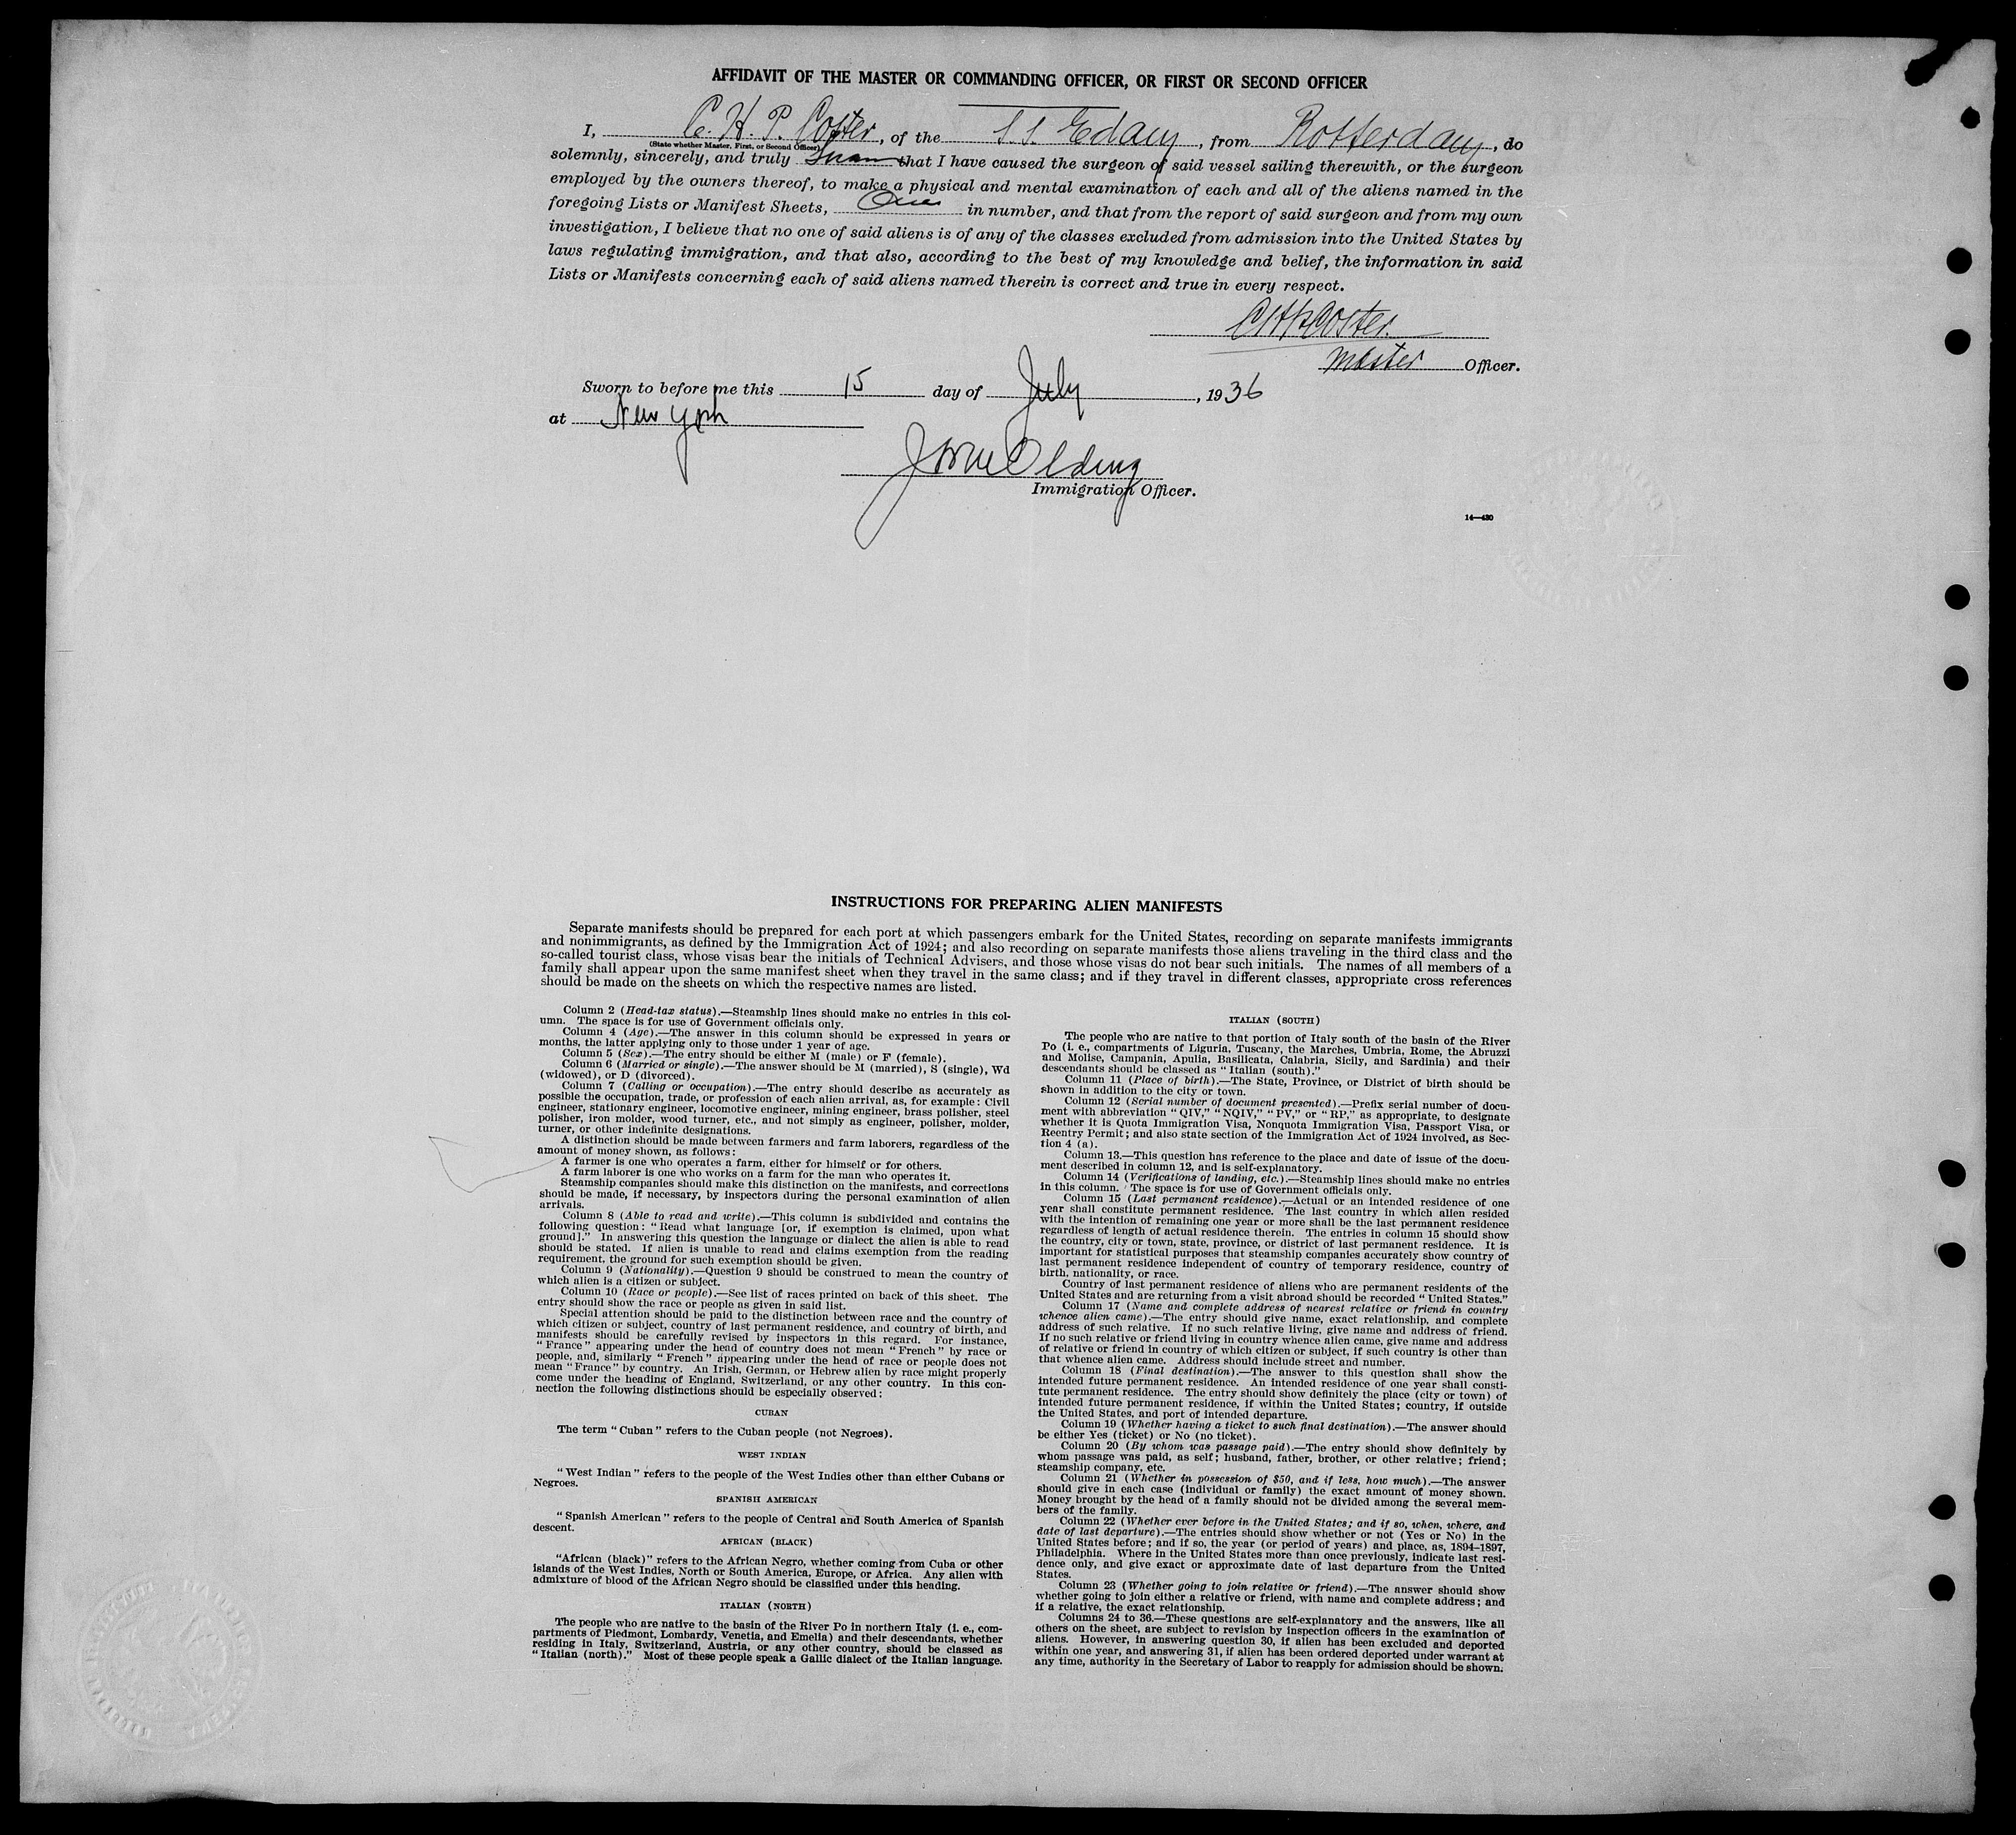 AFFIDAVIT OF THE MASTER OR COMMANDING OFFICER, OR FIRST OR SECOND OFFICER
I, C. H. P. Coster, of the S.S. Edam, from Rotterdam, do
(State whether Master, First, or Second Officer)
solemnly, sincerely, and truly Swear that I have caused the surgeon of said vessel sailing therewith, or the surgeon
employed by the owners thereof, to make a physical and mental examination of each and all of the aliens named in the
foregoing Lists or Manifest Sheets, One in number, and that from the report of said surgeon and from my own
investigation, I believe that no one of said aliens is of any of the classes excluded from admission into the United States by
laws regulating immigration, and that also, according to the best of my knowledge and belief, the information in said
Lists or Manifests concerning each of said aliens named therein is correct and true in every respect.
CHPCoster.
Master Officer.
Sworn to before me this 15 day of July, 1936
at New York
Immigration Officer.
14—430
INSTRUCTIONS FOR PREPARING ALIEN MANIFESTS
Separate manifests should be prepared for each port at which passengers embark for the United States, recording on separate manifests immigrants
and nonimmigrants, as defined by the Immigration Act of 1924; and also recording on separate manifests those aliens traveling in the third class and the
so-called tourist class, whose visas bear the initials of Technical Advisers, and those whose visas do not bear such initials. The names of all members of a
family shall appear upon the same manifest sheet when they travel in the same class; and if they travel in different classes, appropriate cross references
should be made on the sheets on which the respective names are listed.
Column 2 (Head-tax status).—Steamship lines should make no entries in this col-
umn. The space is for use of Government officials only.
Column 4 (Age).—The answer in this column should be expressed in years or
months, the latter applying only to those under 1 year of age.
Column 5 (Sex).—The entry should be either M (male) or F (female).
Column 6 (Married or single).—The answer should be M (married), S (single), Wd
(widowed), or D (divorced).
Column 7 (Calling or occupation).—The entry should describe as accurately as
possible the occupation, trade, or profession of each alien arrival, as, for example: Civil
engineer, stationary engineer, locomotive engineer, mining engineer, brass polisher, steel
polisher, iron molder, wood turner, etc., and not simply as engineer, polisher, molder,
turner, or other indefinite designations.
A distinction should be made between farmers and farm laborers, regardless of the
amount of money shown, as follows:
A farmer is one who operates a farm, either for himself or for others.
A farm laborer is one who works on a farm for the man who operates it.
Steamship companies should make this distinction on the manifests, and corrections
should be made, if necessary, by inspectors during the personal examination of alien
arrivals.
Column 8 (Able to read and write).—This column is subdivided and contains the
following question: "Read what language [or, if exemption is claimed, upon what
ground]." In answering this question the language or dialect the alien is able to read
should be stated. If alien is unable to read and claims exemption from the reading
requirement, the ground for such exemption should be given.
Column 9 (Nationality).—Question 9 should be construed to mean the country of
which alien is a citizen or subject.
Column 10 (Race or people).—See list of races printed on back of this sheet. The
entry should show the race or people as given in said list.
Special attention should be paid to the distinction between race and the country of
which citizen or subject, country of last permanent residence, and country of birth, and
manifests should be carefully revised by inspectors in this regard. For instance,
"France" appearing under the head of country does not mean "French" by race or
people, and, similarly "French" appearing under the head of race or people does not
mean "France" by country. An Irish, German, or Hebrew alien by race might properly
come under the heading of England, Switzerland, or any other country. In this con-
nection the following distinctions should be especially observed:
CUBAN
The term "Cuban" refers to the Cuban people (not Negroes).
WEST INDIAN
"West Indian" refers to the people of the West Indies other than either Cubans or
Negroes.
SPANISH AMERICAN
"Spanish American" refers to the people of Central and South America of Spanish
descent.
AFRICAN (BLACK)
"African (black)" refers to the African Negro, whether coming from Cuba or other
islands of the West Indies, North or South America, Europe, or Africa. Any alien with
admixture of blood of the African Negro should be classified under this heading.
ITALIAN (NORTH)
The people who are native to the basin of the River Po in northern Italy (i. e., com-
partments of Piedmont, Lombardy, Venetia, and Emelia) and their descendants, whether
residing in Italy, Switzerland, Austria, or any other country, should be classed as
"Italian (north)." Most of these people speak a Gallic dialect of the Italian language.
ITALIAN (SOUTH)
The people who are native to that portion of Italy south of the basin of the River
Po (i. e., compartments of Liguria, Tuscany, the Marches, Umbria, Rome, the Abruzzi
and Molise, Campania, Apulia, Basilicata, Calabria, Sicily, and Sardinia) and their
descendants should be classed as "Italian (south)."
Column 11 (Place of birth).—The State, Province, or District of birth should be
shown in addition to the city or town.
Column 12 (Serial number of document presented).—Prefix serial number of docu-
ment with abbreviation "QIV," "NQIV," "PV," or "RP," as appropriate, to designate
whether it is Quota Immigration Visa, Nonquota Immigration Visa, Passport Visa, or
Reentry Permit; and also state section of the Immigration Act of 1924 involved, as Sec-
tion 4 (a).
Column 13.—This question has reference to the place and date of issue of the docu-
ment described in column 12, and is self-explanatory.
Column 14 (Verifications of landing, etc.).—Steamship lines should make no entries
in this column. The space is for use of Government officials only.
Column 15 (Last permanent residence).—Actual or an intended residence of one
year shall constitute permanent residence. The last country in which alien resided
with the intention of remaining one year or more shall be the last permanent residence
regardless of length of actual residence therein. The entries in column 15 should show
the country, city or town, state, province, or district of last permanent residence. It is
important for statistical purposes that steamship companies accurately show country of
last permanent residence independent of country of temporary residence, country of
birth, nationality, or race.
Country of last permanent residence of aliens who are permanent residents of the
United States and are returning from a visit abroad should be recorded "United States."
Column 17 (Name and complete address of nearest relative or friend in country
whence alien came).—The entry should give name, exact relationship, and complete
address of such relative. If no such relative living, give name and address of friend.
If no such relative or friend living in country whence alien came, give name and address
of relative or friend in country of which citizen or subject, if such country is other than
that whence alien came. Address should include street and number.
Column 18 (Final destination).—The answer to this question shall show the
intended future permanent residence. An intended residence of one year shall consti-
tute permanent residence. The entry should show definitely the place (city or town) of
intended future permanent residence, if within the United States; country, if outside
the United States, and port of intended departure.
Column 19 (Whether having a ticket to such final destination).—The answer should
be either Yes (ticket) or No (no ticket).
Column 20 (By whom was passage paid).—The entry should show definitely by
whom passage was paid, as self; husband, father, brother, or other relative; friend;
steamship company, etc.
Column 21 (Whether in possession of $50, and if less, how much).—The answer
should give in each case (individual or family) the exact amount of money shown.
Money brought by the head of a family should not be divided among the several mem-
bers of the family.
Column 22 (Whether ever before in the United States; and if so, when, where, and
date of last departure).—The entries should show whether or not (Yes or No) in the
United States before; and if so, the year (or period of years) and place, as, 1894–1897,
Philadelphia. Where in the United States more than once previously, indicate last resi-
dence only, and give exact or approximate date of last departure from the United
States.
Column 23 (Whether going to join relative or friend).—The answer should show
whether going to join either a relative or friend, with name and complete address; and
if a relative, the exact relationship.
Columns 24 to 36.—These questions are self-explanatory and the answers, like all
others on the sheet, are subject to revision by inspection officers in the examination of
aliens. However, in answering question 30, if alien has been excluded and deported
within one year, and answering 31, if alien has been ordered deported under warrant at
any time, authority in the Secretary of Labor to reapply for admission should be shown.